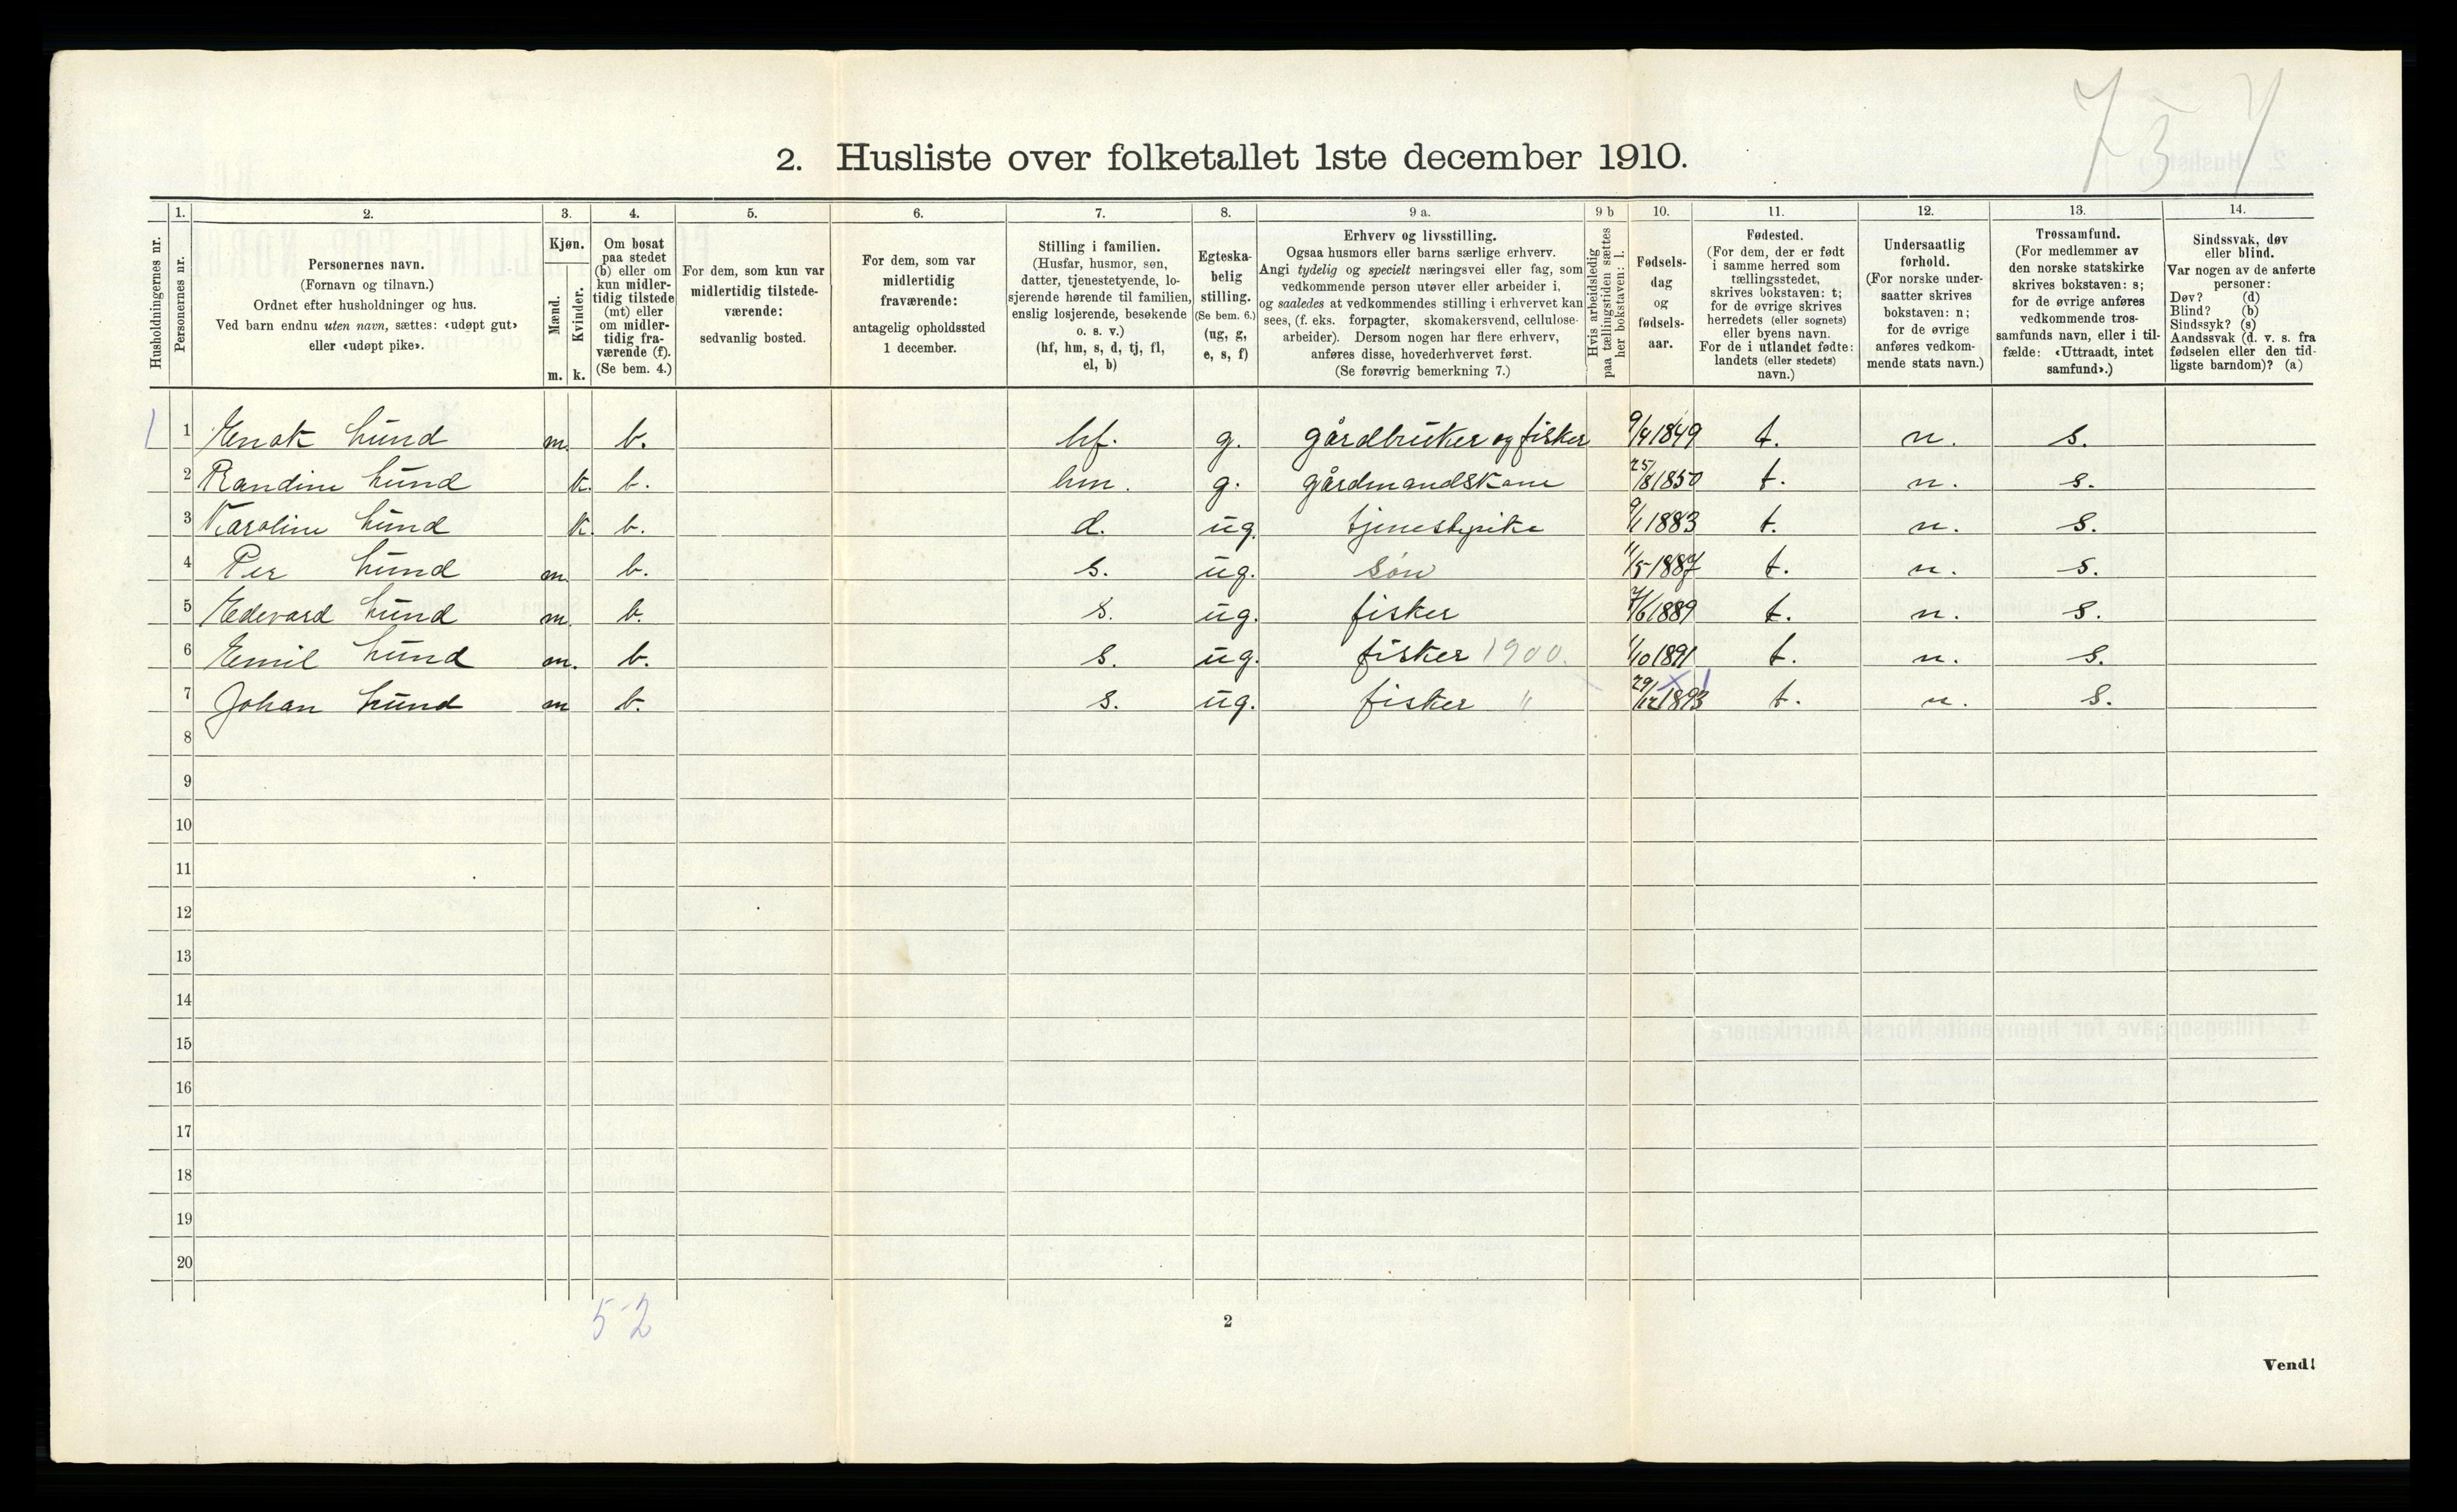 7 3 7
2. Husliste over folketallet 1ste december 1910.
Husholdningernes nr.
1. Personernes nr.
2. Personernes navn.
(Fornavn og tilnavn.)
Ordnet efter husholdninger og hus.
Ved barn endnu uten navn, sættes: «udøpt gut»
eller «udøpt pike».
3. Kjøn.
Mænd. Kvinder.
m. k.
4. Om bosat
paa stedet
(b) eller om
kun midler-
tidig tilstede
(mt) eller
om midler-
tidig fra-
værende (f).
(Se bem. 4.)
5. For dem, som kun var
midlertidig tilstede-
værende:
sedvanlig bosted.
6. For dem, som var
midlertidig
fraværende:
antagelig opholdssted
1 december.
7. Stilling i familien.
(Husfar, husmor, søn,
datter, tjenestetyende, lo-
sjerende hørende til familien,
enslig losjerende, besøkende
o. s. v.)
(hf, hm, s, d, tj, fl,
el, b)
8. Egteska-
belig
stilling.
(Se bem. 6.)
(ug, g,
e, s, f)
9 a. Erhverv og livsstilling.
Ogsaa husmors eller barns særlige erhverv.
Angi tydelig og specielt næringsvei eller fag, som
vedkommende person utøver eller arbeider i,
og saaledes at vedkommendes stilling i erhvervet kan
sees, (f. eks. forpagter, skomakersvend, cellulose-
arbeider). Dersom nogen har flere erhverv,
anføres disse, hovederhvervet først.
(Se forøvrig bemerkning 7.)
9 b Hvis arbeidsledig
paa tællingstiden sættes
her bokstaven: l.
10. Fødsels-
dag
og
fødsels-
aar.
11. Fødested.
(For dem, der er født
i samme herred som
tællingsstedet,
skrives bokstaven: t;
for de øvrige skrives
herredets (eller sognets)
eller byens navn.
For de i utlandet fødte:
landets (eller stedets)
navn.)
12. Undersaatlig
forhold.
(For norske under-
saatter skrives
bokstaven: n;
for de øvrige
anføres vedkom-
mende stats navn.)
13. Trossamfund.
(For medlemmer av
den norske statskirke
skrives bokstaven: s;
for de øvrige anføres
vedkommende tros-
samfunds navn, eller i til-
fælde: «Uttraadt, intet
samfund».)
14. Sindssvak, døv
eller blind.
Var nogen av de anførte
personer:
Døv? (d)
Blind? (b)
Sindssyk? (s)
Aandssvak (d. v. s. fra
fødselen eller den tid-
ligste barndom)? (a)
1 1 Enok Lund m. b. hf. g. gårdbruker og fisker 9/4 1849 t. n. s.
2 Randine Lund k. b. hm. g. gårdmandskone 25/8 1850 t. n. s.
3 Karoline Lund k. b. d. ug. tjenestpike 9/1 1883 t. n. s.
4 Per Lund m. b. s. ug. søn 11/5 1887 t. n. s.
5 Edevard Lund m. b. s. ug. fisker 7/6 1889 t. n. s.
6 Emil Lund m. b. s. ug. fisker 1900. 1/10 1891 t. n. s.
7 Johan Lund m b. s. ug. fisker " 29/12 1893 t. n. s.
8
9
10
11
12
13
14
15
16
17
18
19
20
5-2
2
Vend!